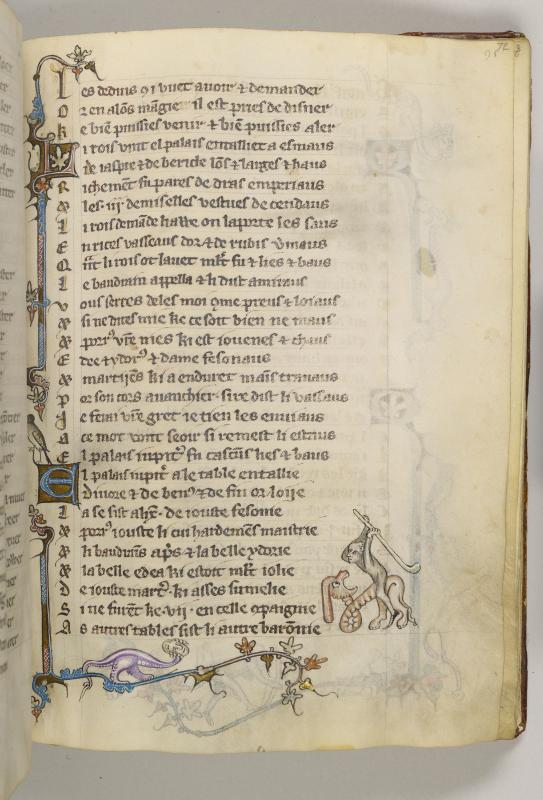 72 8
Les deduis 9i vuet avoir & demander
Or en alōs māgie il est pres de disner
Ke biē puissies venir & biē puissies aler
Li rois vint el palais entailliet a esmaus
De iaspre & de bericle lōs & larges & haus
Richemēt fu pares de dras emperiaus
& les iij demiselles vestues de cendaus
Li rois demāde on laporte les
En rices vaisseaus dor & de rubis
Qāt li rois ot lauet mlt fu & lies & baus
Le baudrain appella & li dist amiraus
Vous serres deles moi 9me preus & loiaus
& si ne dites mie ke ce soit bien ne maus
& porr9 vr̄e nies ki est iouenes &
Edee & ydor9 & dame fesonaus
& martiiēs ki a enduret mais trauaus
Por son cors auanchier sire dist li vassaus
Ie ferai vr̄e gret ie tien les enuiaus
A ce mot vont seoir si remest li estaus
El palais iupit' fu cascūs lies & baus
El palais iupit' a le table entallie
Diuore & de ben9 & de fin or loiie
La se sist de iouste fesonie
& porr9 iouste li cui hardemēs maistrie
& li baudrains & la belle ydorie
& la belle edea ki estoit mlt iolie
De iouste mart' ki asses
Si ne furēt ke vij en celle 9paignie
As autres tables sist li autre baronie